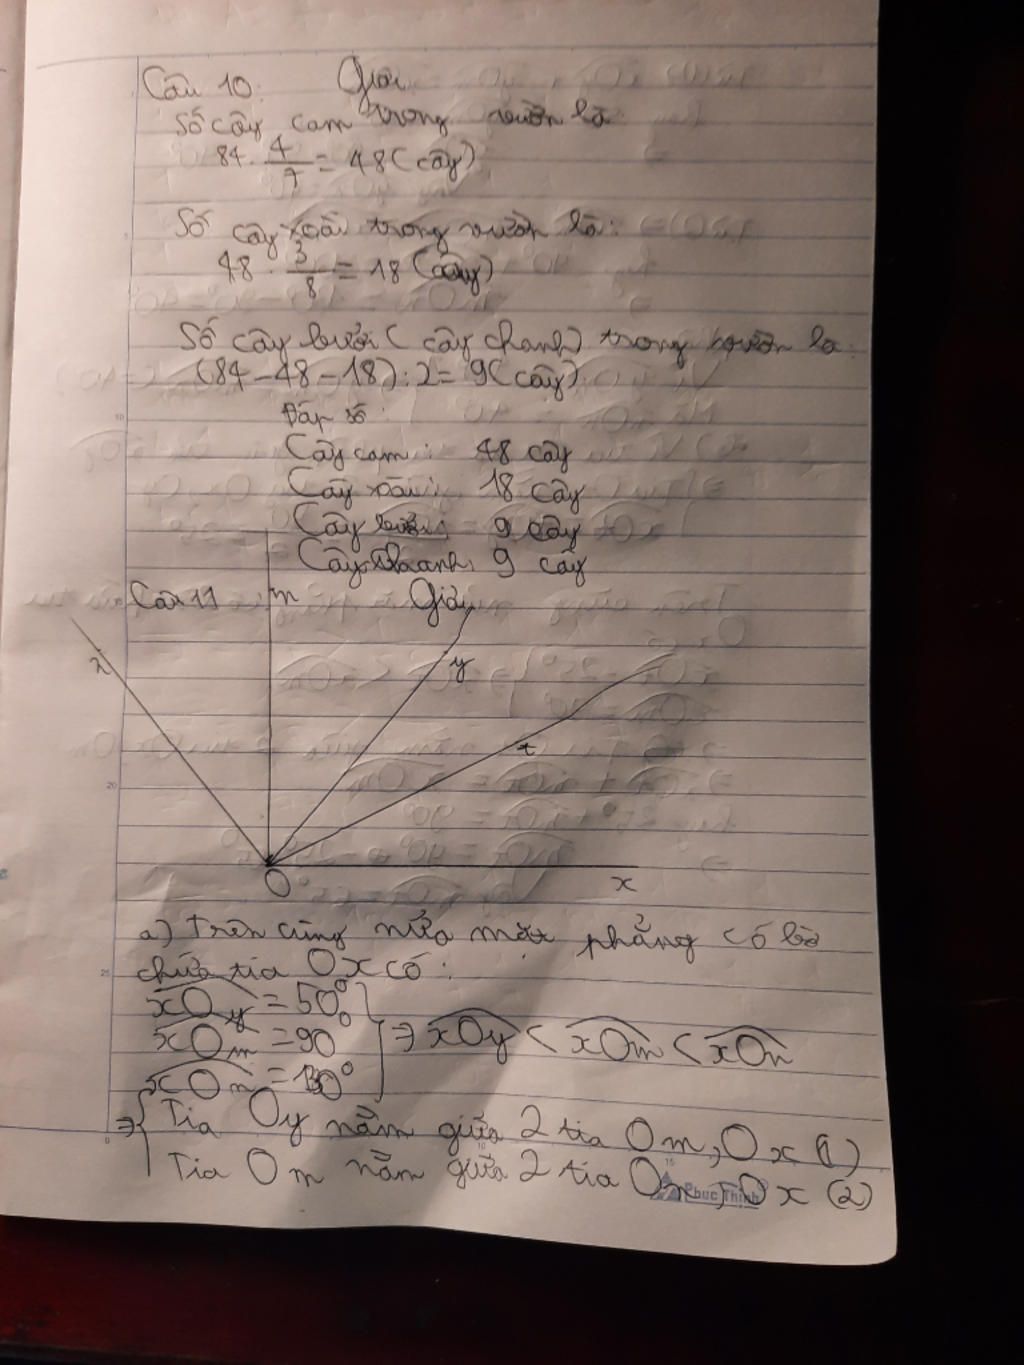 Câu 10: Giải
Số cây cam trong vườn là
84 . 4/7 = 48 (cây)
Số cây xoài trong vườn là:
48 . 3/8 = 18 (cây)
Số cây bưởi (cây chanh) trong vườn là:
(84 - 48 - 18) : 2 = 9 (cây)
Đáp số:
Cây cam: 48 cây
Cây xoài: 18 cây
Cây bưởi: 9 cây
Cây chanh: 9 cây
Câu 11 m Giải
n y
t
O x
a) Trên cùng nửa mặt phẳng có bờ
chứa tia Ox có:
xOy = 50°
xOm = 90° ⇒ xOy < xOm < xOn
xOn = 130°
⇒ Tia Oy nằm giữa 2 tia Om, Ox (1)
Tia Om nằm giữa 2 tia On, Ox (2)
Phuc Thinh